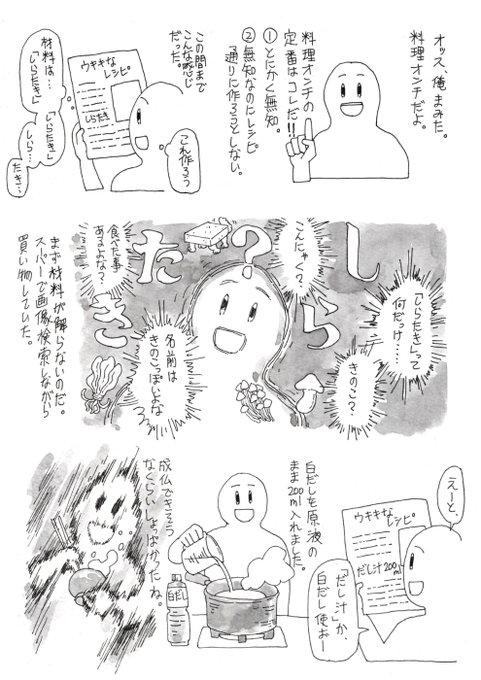 オッス、俺まみた。
料理オンチだよ。
料理オンチの
定番はコレだ!!
①とにかく無知。
②無知なのにレシピ
通りに作ろうとしない。
この間まで
こんな感じ
だった。
ウキキなレシピ
しらたき
これ作ろう
材料は…
「しらたき」
「しらたき」
しら…
たき…
しらたき?
「しらたき」って
何だっけ……
きのこ?
こんにゃく?
名前は
きのこっぽいよな
食べた事
あるよな?
まず材料が解らないのだ。
スーパーで画像検索しながら
買い物していた。
えーと、
ウキキな
レシピ
だし汁200ml
「だし汁」か、
白だし使お―
白だしを原液の
まま200ml入れました。
白だし
成仏できそう
なくらいしょっぱかったね。